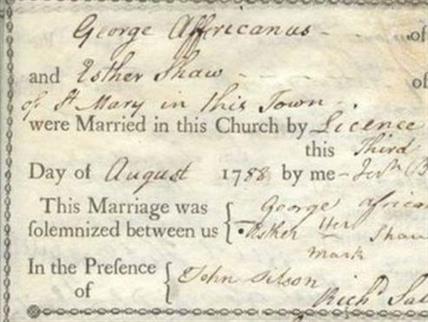 George Affricanus of
and Esther Shaw of
of St. Mary in this Town.
were Married in this Church by Licence
this Third
Day of August 1788 by me
This Marriage was
solemnized between us
George African
Her Shaw
mark
In the Presence
of
John
Richd